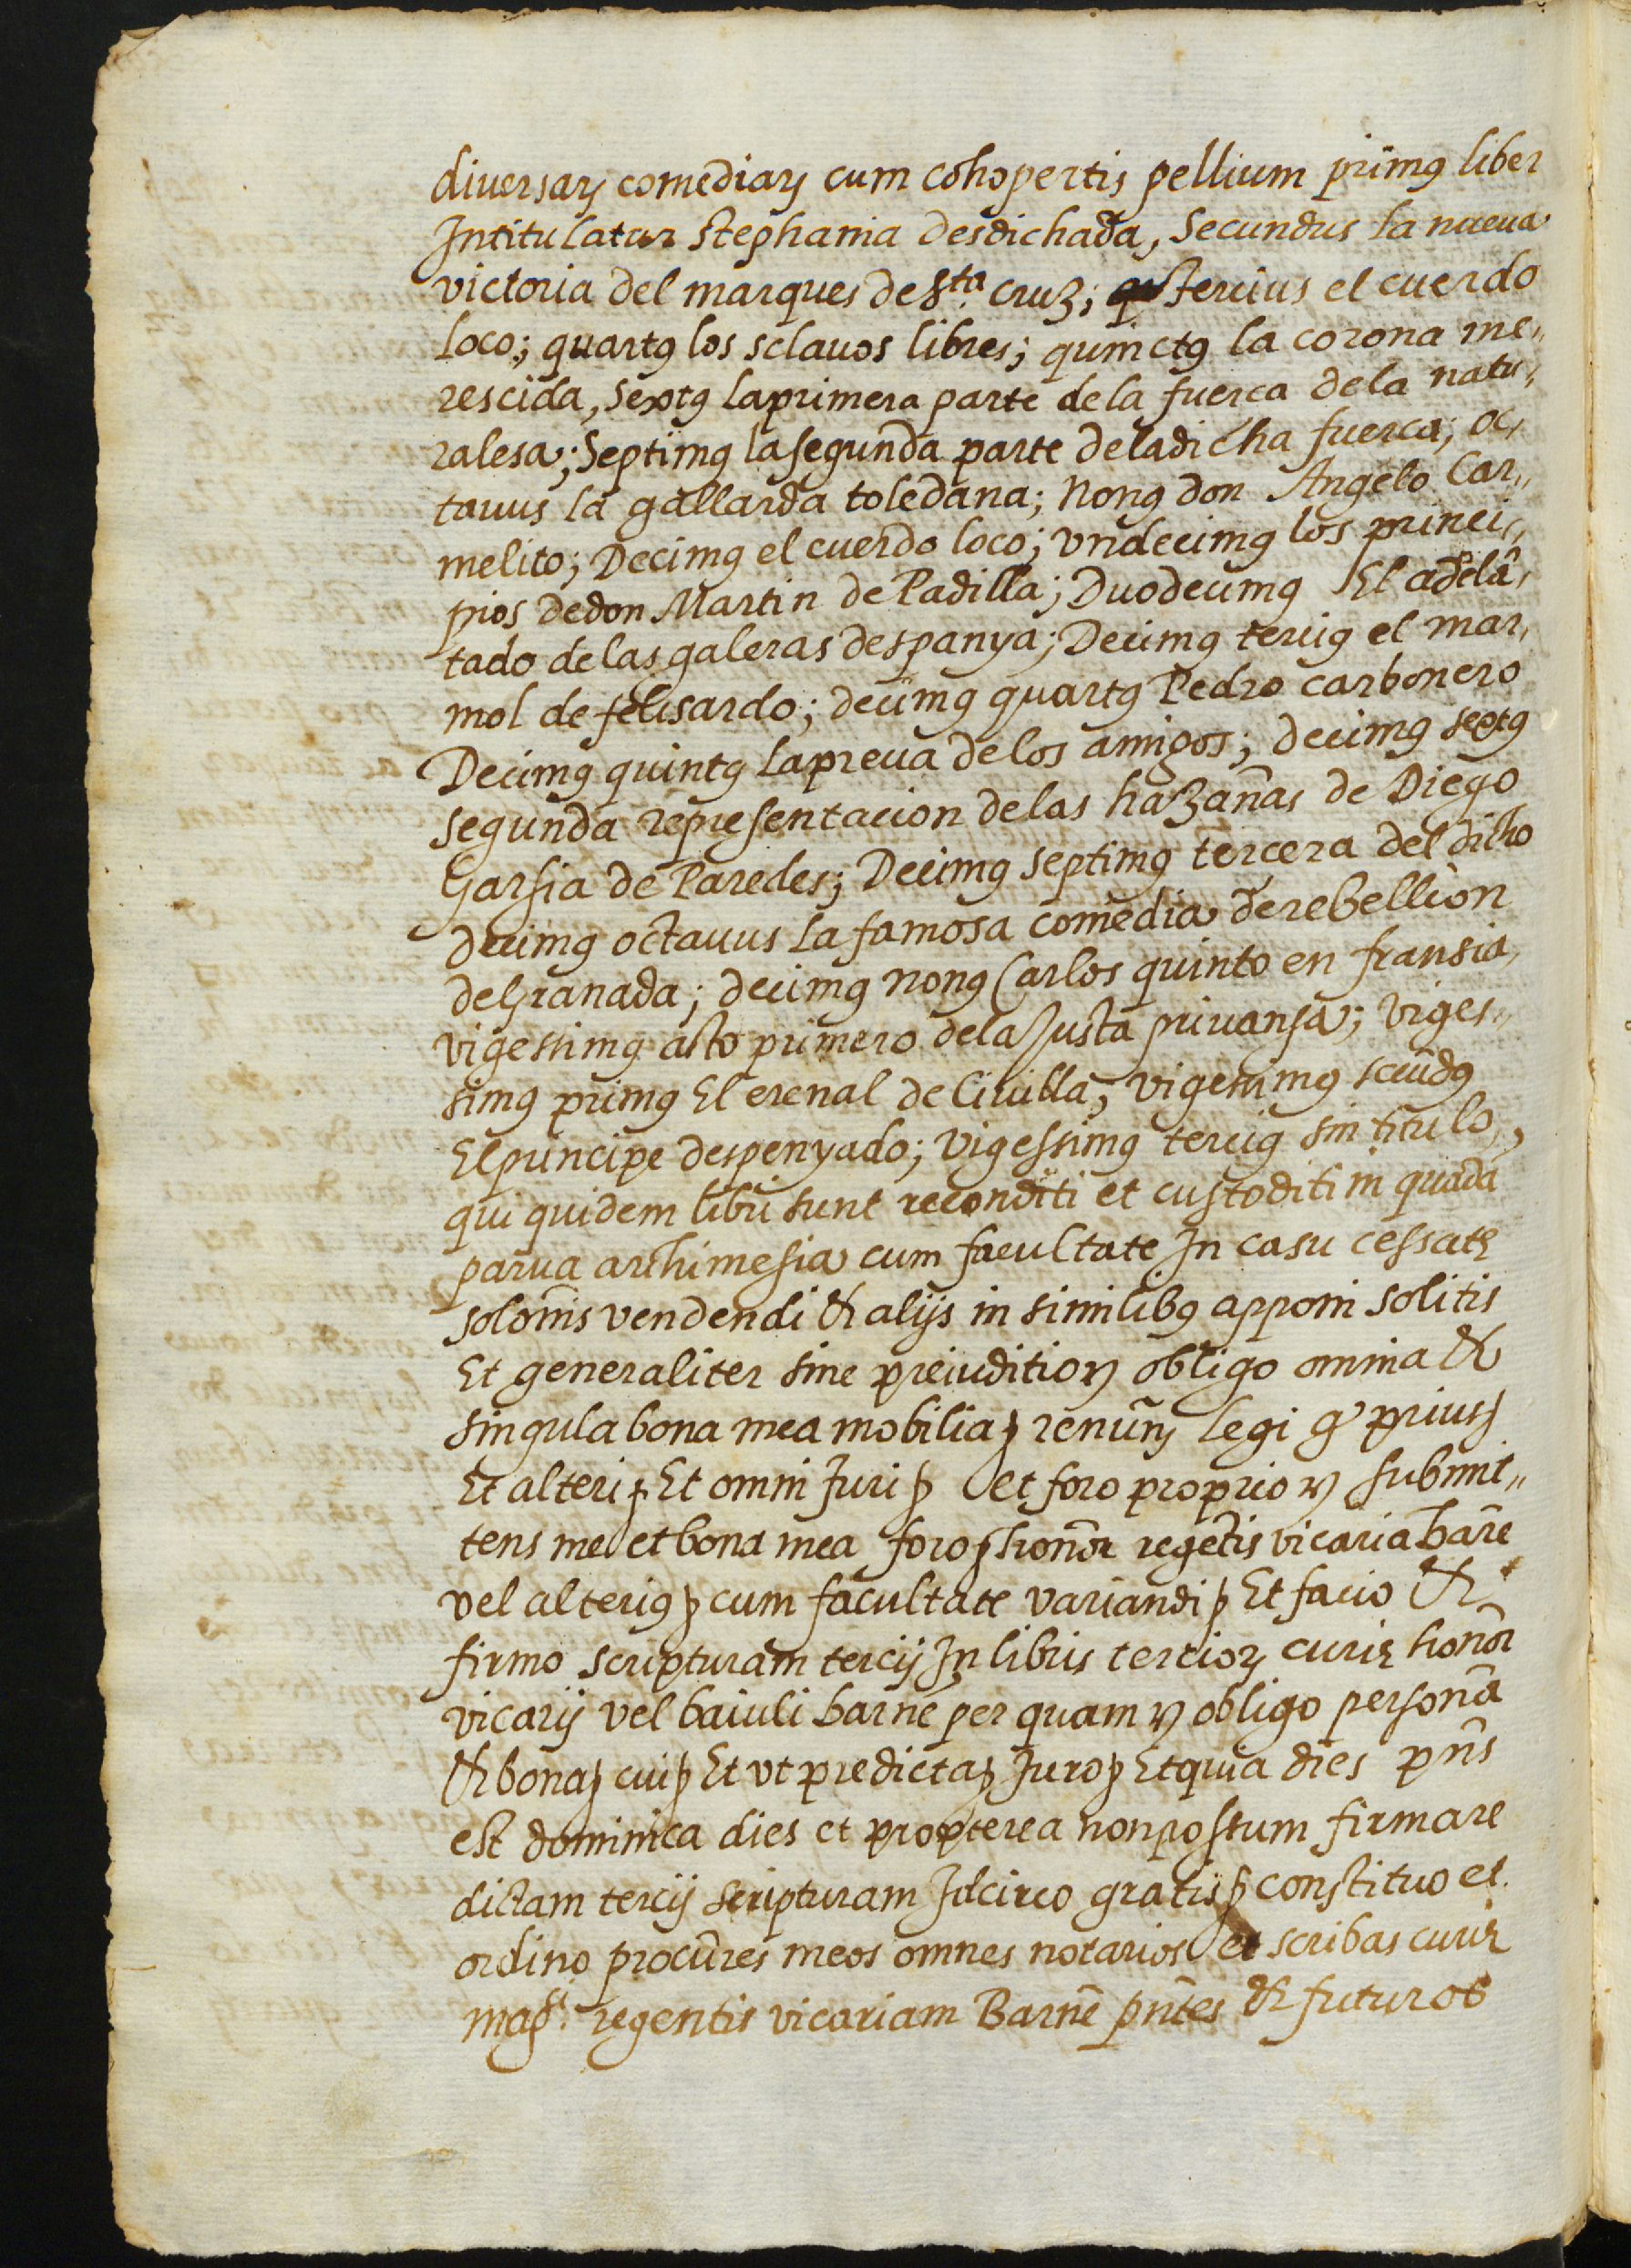 diuersarꝝ comediarꝝ cum cohopertis pellium primꝰ liber
Intitulatur Stephania desdichada, Secundus la nueua
victoria del marques de Sta. cruz; tercius el cuerdo
loco; quartꝰ los sclauos libres; quinctꝰ la corona me„
rescida, Sextꝰ la primera parte de la fuerca de la natu„
ralesa; Septimꝰ la segunda parte de la dicha fuerca; oc„
tauus la gallarda toledana; Nonꝰ don Angelo Car„
melito; Decimꝰ el cuerdo loco; Vndecimꝰ los princi„
pios de don Martin de Padilla; Duodecimꝰ El adelã„
tado de las galeras despanya; Decimꝰ terciꝰ el mar„
mol de felisardo; decimꝰ quartꝰ Pedro carbonero
Decimꝰ quintꝰ la preua de los amigos; decimꝰ sextꝰ
segunda representacion de las hazañas de Diego
Garsia de Paredes; Decimꝰ septimꝰ tercera del dicho
decimꝰ octauus la famosa comedia de rebellion
de Granada; decimꝰ nonꝰ Carlos quinto en fransia,
vigessimꝰ acto primero de la Justa priuansa; viges„
simꝰ primꝰ El erenal de Ciuilla, vigessimꝰ secũdꝰ
El principe despenyado; vigessimꝰ terciꝰ sin titulo,,
qui quidem libri sunt reconditi et custoditi in quadã
parua archimesia cum facultate In casu cessatę
solõnis vendendi & alijs in similibꝰ apponi solitis
Et generaliter sine preiuditio ꝛ obligo omnia &
singula bona mea mobilia ꝑ renunꝝ legi qꝫ priusꝑ
Et alteri ꝑ Et omni Juri ꝑ et foro proprio ꝛ submit„
tens me et bona mea foro ꝑ honor̃ regẽtis vicaria barñe
vel alteriꝰ ꝑ cum facultate variandi ꝑ Et facio &
firmo scripturam tercij In libris terciorꝝ curię honor̃
vicarij vel baiuli barñe per quam ꝛ obligo personã
& bona ꝑ cui ꝑ Et vt predicta ꝑ Juro ꝑ Et quia dies pñs
est dominica dies et propterea non possum firmare
dictam tercij scripturam Idcirco gratis ꝑ constituo et
ordino procũres meos omnes notarios et scribas curię
magci. regentis vicariam Barñe pñtes & futuros